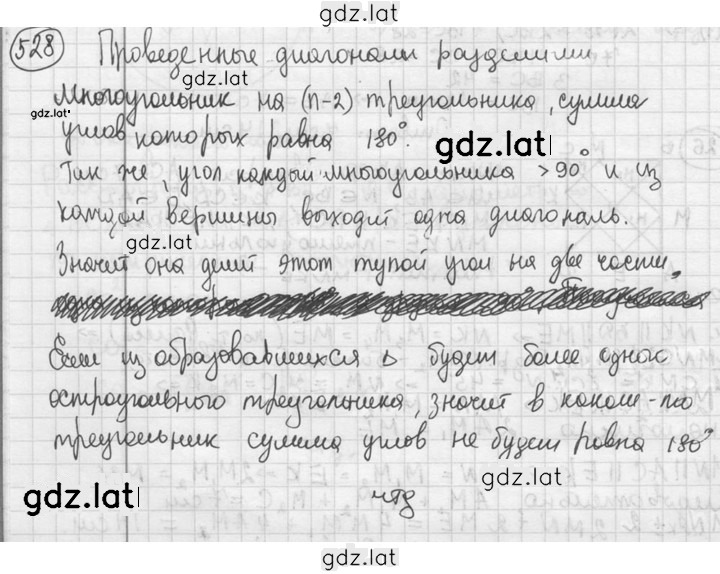 gdz.lat
528 Проведенные диагонали разделили
gdz.lat
многоугольник на (n-2) треугольника, сумма
gdz.lat
углов которых равна 180°.
gdz.lat
Так же, угол каждый многоугольника >90° и из
каждой вершины выходит одна диагональ.
gdz.lat
Значит она делит этот тупой угол на две части.
Если из образовавшихся △ будет более одного
остроугольного треугольника, значит в каком-то
треугольник сумма углов не будет равна 180°
gdz.lat
gdz.lat
чтд
gdz.lat